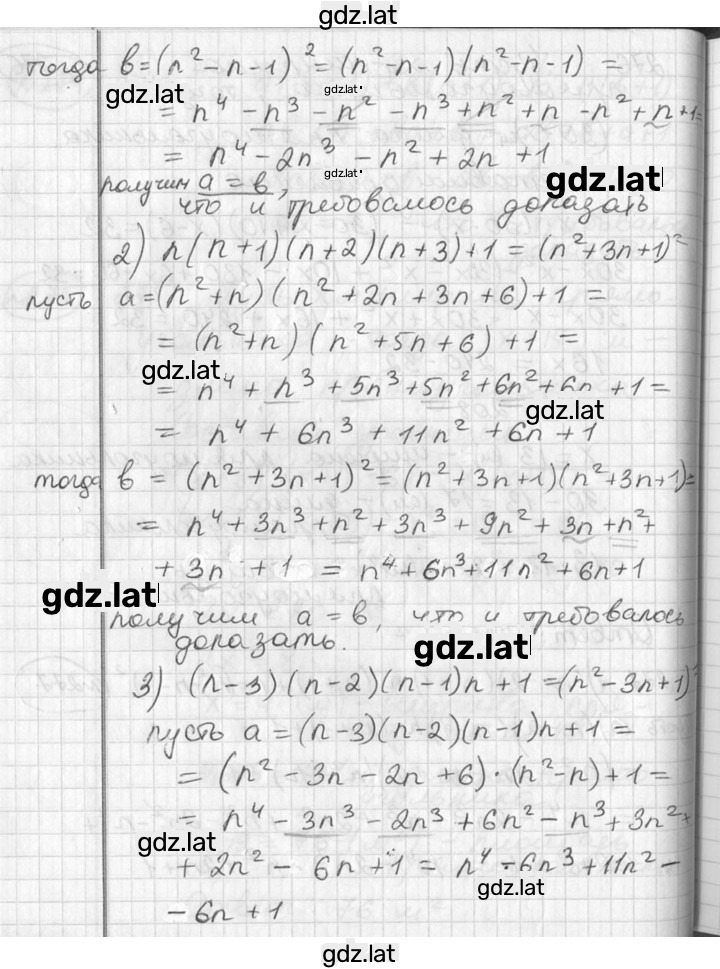 gdz.lat
тогда b=(n²-n-1)²=(n²-n-1)(n²-n-1)=
gdz.lat gdz.lat
= n⁴ - n³ - n² - n³ + n² + n - n² + n + 1=
= n⁴ - 2n³ - n² + 2n + 1
получим a = b,
gdz.lat gdz.lat
что и требовалось доказать
2) n(n+1)(n+2)(n+3)+1 = (n²+3n+1)²
пусть a=(n²+n)(n²+2n+3n+6)+1 =
= (n²+n)(n²+5n+6)+1 =
gdz.lat
= n⁴ + n³ + 5n³ + 5n² + 6n² + 6n + 1 =
gdz.lat
= n⁴ + 6n³ + 11n² + 6n + 1
тогда b = (n²+3n+1)² = (n²+3n+1)(n²+3n+1)=
= n⁴ + 3n³ + n² + 3n³ + 9n² + 3n + n² +
+ 3n + 1 = n⁴ + 6n³ + 11n² + 6n + 1
gdz.lat
получим a = b, что и требовалось
доказать.
gdz.lat
3) (n-3)(n-2)(n-1)n + 1 =(n²-3n+1)²
пусть a = (n-3)(n-2)(n-1)n + 1 =
= (n² - 3n - 2n + 6)·(n²-n)+1 =
= n⁴ - 3n³ - 2n³ + 6n² - n³ + 3n² +
gdz.lat
+ 2n² - 6n + 1 = n⁴ - 6n³ + 11n² -
gdz.lat
- 6n + 1
gdz.lat